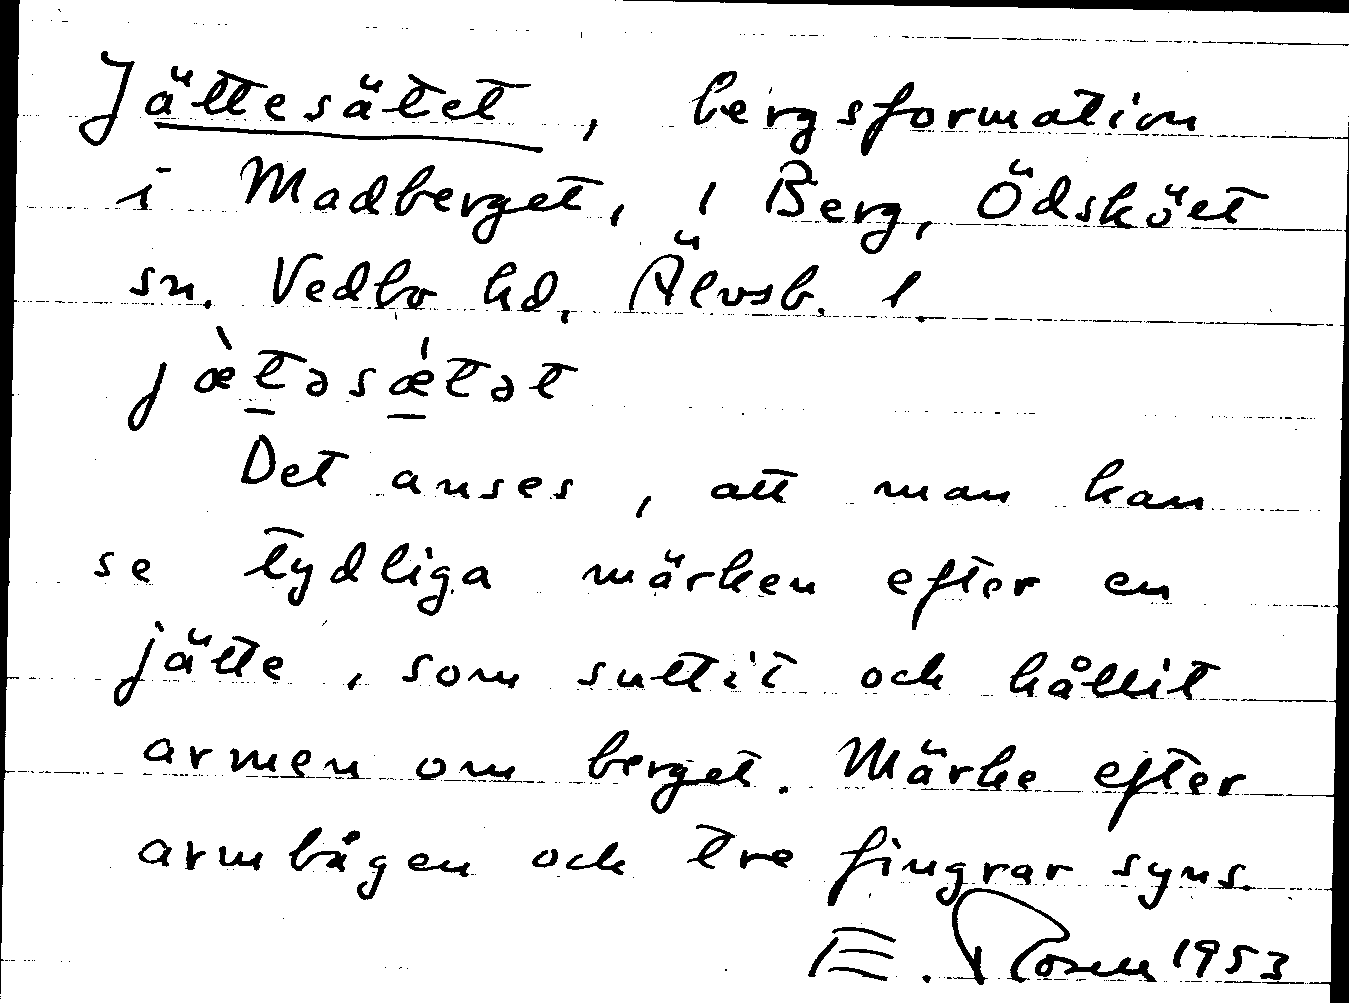 Jättesätet, bergsformation
i Madberget, i Berg, Ödsköet
sn. Vedbo hd, Älvsb. l.
jæ̀təsǽtət
Det anses, att man kan
se tydliga märken efter en
jätte, som suttit och hållit
armen om berget. Märke efter
armbågen och tre fingrar syns.
E. Rosen 1953